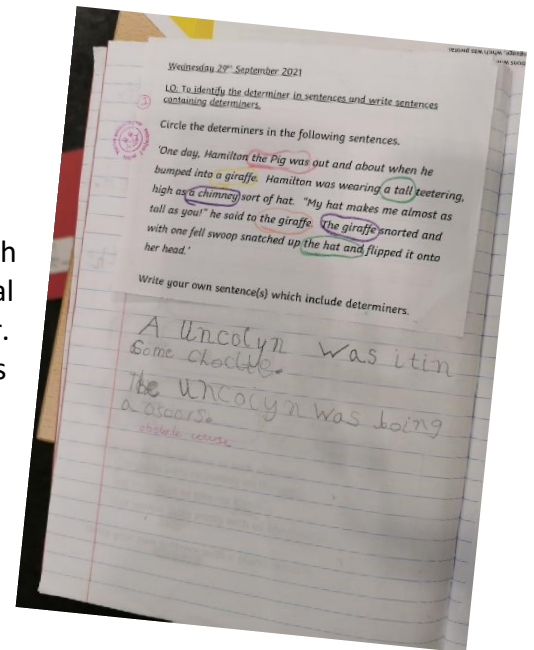 Wednesday 29th September 2021
LO: To identify the determiner in sentences and write sentences
containing determiners.
Circle the determiners in the following sentences.
'One day, Hamilton the Pig was out and about when he
bumped into a giraffe. Hamilton was wearing a tall teetering,
high as a chimney sort of hat. "My hat makes me almost as
tall as you!" he said to the giraffe. The giraffe snorted and
with one fell swoop snatched up the hat and flipped it onto
her head.'
Write your own sentence(s) which include determiners.
A uncolyn was itin
Some choclte.
The uncolyn was boing
a
h
al
r.
s